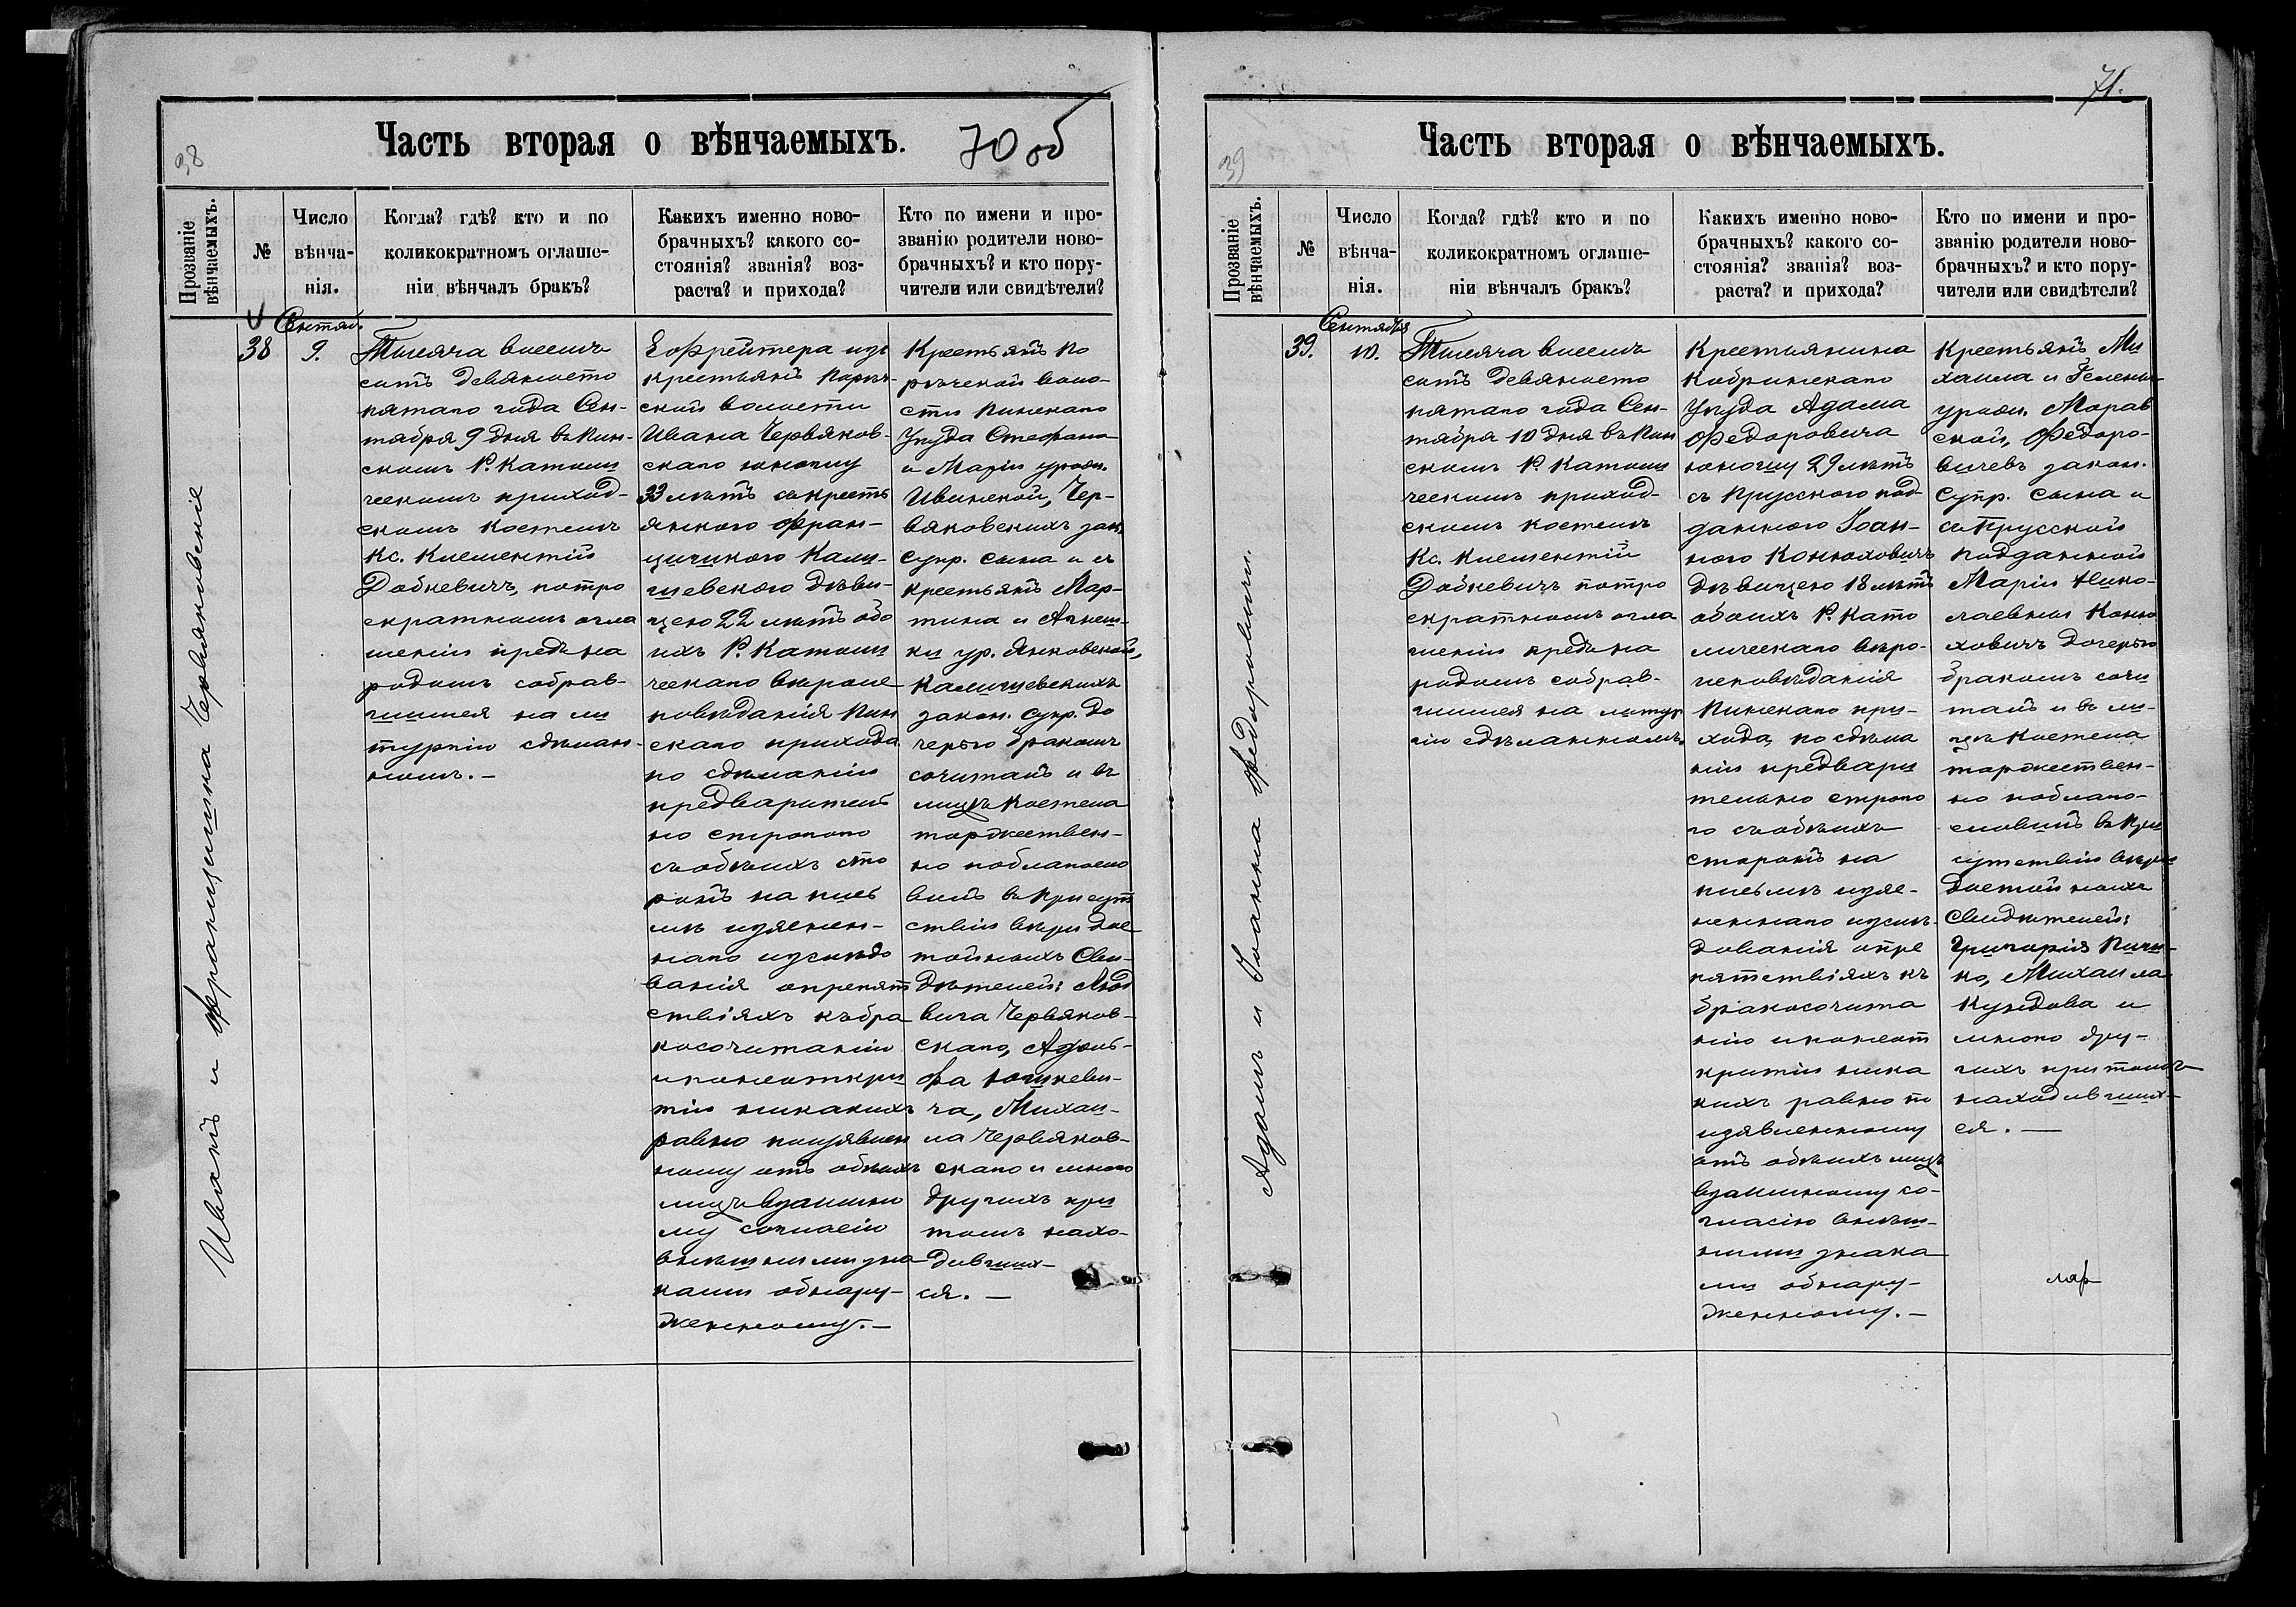 38
Часть вторая о вѣнчаемыхъ.
70 об
Прозваніе
вѣнчаемыхъ.
№
Число
вѣнча-
нія.
Когда? гдѣ? кто и по
коликократномъ оглаше-
ніи вѣнчалъ бракъ?
Какихъ именно ново-
брачныхъ? какого со-
стоянія? званія? воз-
раста? и прихода?
Кто по имени и про-
званію родители ново-
брачныхъ? и кто пору-
чители или свидѣтели?
Иванъ и Францишка Червяковскіе
38
Сентяб.
9.
Тысяча восемъ
сотъ девяносто
пятаго года Сен-
тября 9 дня въ Пин-
скомъ Р. Католи
ческомъ приход-
скомъ костелѣ
Кс. Клементій
Дойневичъ, по тро
екратномъ огла
шеніи предъ на
родомъ собрав-
шимся на ли
тургію сдѣлан-
номъ.-
Ефрейтера изъ
крестьянъ Порѣч-
ской волости
Ивана Червяков-
скаго юношу
33 лѣтъ съ кресть
янкою Фран-
цишкою Кали-
шевскою дѣви-
цею 22 лѣтъ обо
ихъ Р. Католи
ческаго вѣроис
повѣданія Пин
скаго прихода
по сдѣланіи
предварительн
но строгого
съ обѣихъ сто
ронъ на пись
мѣ изъясен-
наго изслѣдо
ванія о препят
ствіяхъ къ бра
косочитанію
и по неоткры
тіи никакихъ
равно по изъявлен
ному отъ обѣихъ
лицъ взаимно
му согласію
внѣшними зна
ками обнару-
женному.-
Крестьянъ По
рѣчской воло-
сти Пинскаго
Уѣзда Стефана
и Маріи урожд.
Ивинской, Чер-
вяковскихъ зак.
Супр. сына и съ
крестьянъ Мар-
тина и Агнеш-
ки ур. Янковской,
Калишевскихъ
закон. Супр. до
черью бракомъ
сочиталъ и въ
лицѣ костела
торжествен-
но поблагосло
вилъ въ присут
ствіи вѣры дос
тойныхъ Сви-
дѣтелей: Люд
вига Червяков-
скаго, Адоль-
фа Юшкеви-
ча, Михаи-
ла Червяков-
скаго и много
другихъ при
томъ нахо-
дивших-
ся. -
39
71.
Часть вторая о вѣнчаемыхъ.
Прозваніе
вѣнчаемыхъ.
№
Число
вѣнча-
нія.
Когда? гдѣ? кто и по
коликократномъ оглаше-
ніи вѣнчалъ бракъ?
Какихъ именно ново-
брачныхъ? какого со-
стоянія? званія? воз-
раста? и прихода?
Кто по имени и про-
званію родители ново-
брачныхъ? и кто пору-
чители или свидѣтели?
Адамъ и Іоанна Федоровичи.
39.
Сентября
10.
Тысяча восемъ
сотъ девяносто
пятаго года Сен-
тября 10 дня въ Пин
скомъ Р. Католи
ческомъ приход-
скомъ костелѣ
Кс. Клементій
Дойневичъ по тро
екратномъ огла
шеніи предъ на
родомъ собрав-
шимся на литур
гію сдѣланномъ.
Крестьянина
Кобринскаго
Уѣзда Адама
Федоровича
юношу 29 лѣтъ
съ Прусскою под
данною Іоан-
ною Конюховичъ
дѣвицею 18 лѣтъ
обоихъ Р. Като
лическаго вѣро-
исповѣданія
Пинскаго при-
хода, по сдѣла
ніи предвари
тельно строго
го съ обѣихъ
сторонъ на
письмѣ изъяс-
неннаго изслѣ-
дованія о пре
пятствіяхъ къ
бракосочита
нію и по неот
крытіи ника
кихъ равно по
изъявленному
отъ обѣихъ лицъ
взаимному со-
гласію внѣш-
ними знака
ми обнару-
женному.-
Крестьянъ Ми
хаила и Гелены
урожд. Морав
ской, Федоро-
вичевъ закон.
Супр. сына и
съ Прусской
подданной
Маріи Нико-
лаевны Коню
ховичъ дочерью
бракомъ сочи
талъ и въ ли-
цѣ костела
торжествен-
но поблаго-
словилъ въ при
сутствіи вѣры
достойныхъ
Свидѣтелей:
Григорія Пичи-
ко, Михаила
Кундова и
много дру-
гихъ при томъ
находивших-
ся. -